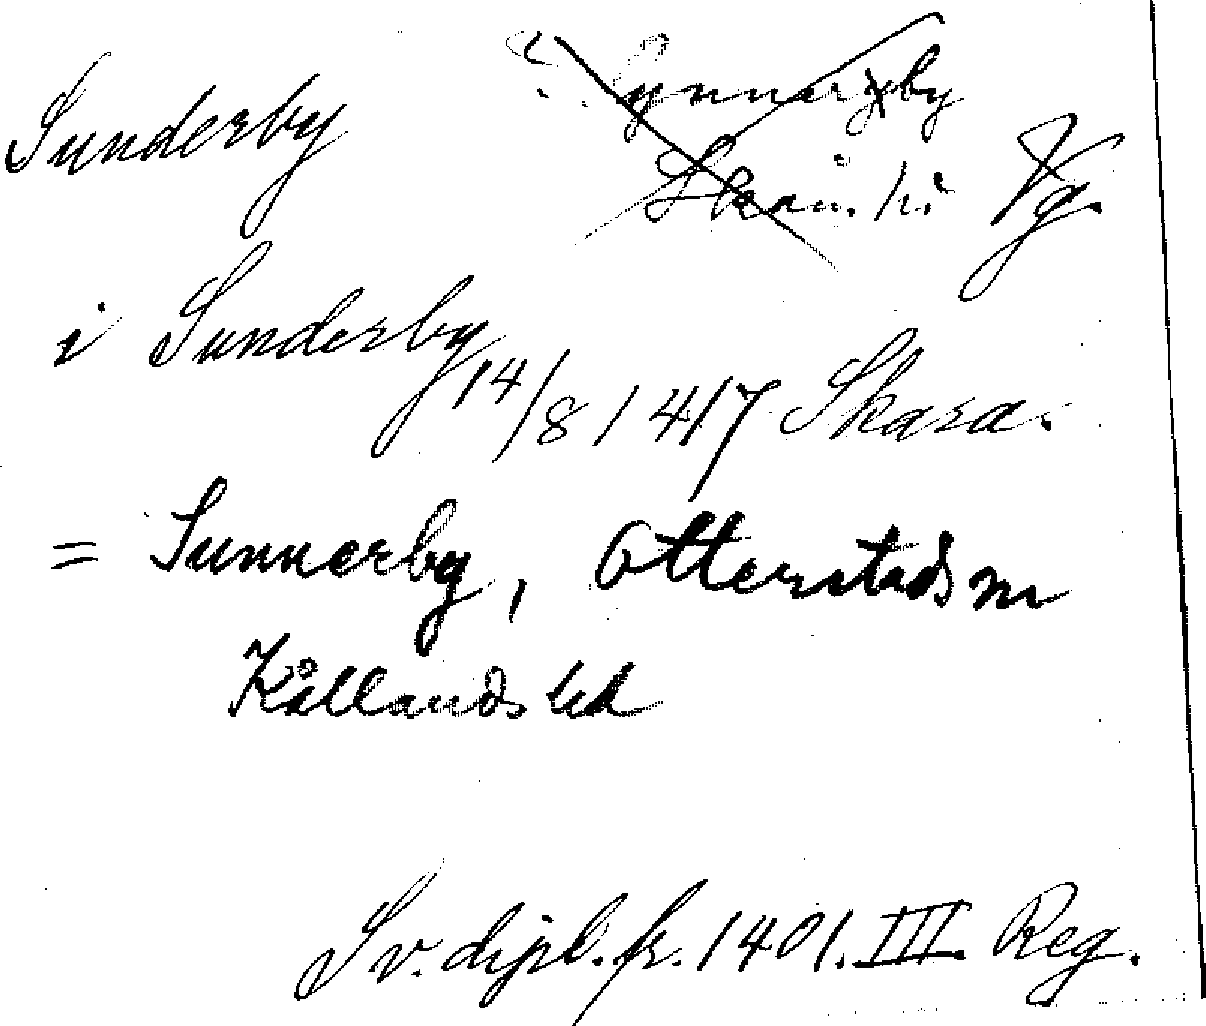 Sunderby
Vg.
i Sunderby
14/8 1417 Skara.
= Sunnerby, Otterstads sn
Kållands hd
Sv. dipl. fr. 1401. III. Reg.